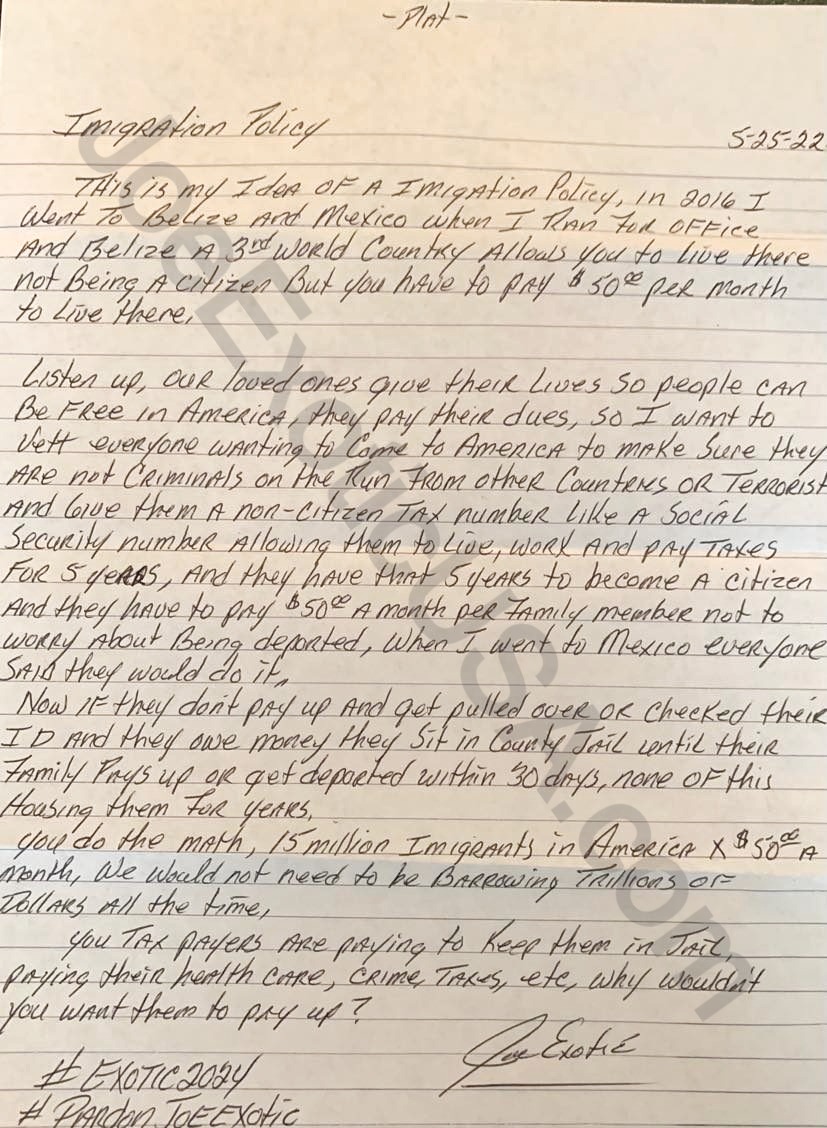 -Plat-
Imigration Policy
5-25-22
This is my Idea of a Imigation Policy, in 2016 I
Went To Belize and Mexico when I Ran for office
And Belize a 3rd World Country Allows you to live there
not Being A citizen But you have to pay $50.00 per month
to Live there,
Listen up, our loved ones give their Lives so people can
Be Free in America, they pay their dues, so I want to
Vett everyone wanting to Come to America to make Sure they
are not Criminals on the Run From other Countries or Terrorist
And Give them a non-citizen Tax number Like a Social
Security number Allowing them to Live, work and pay Taxes
For 5 years, And they have that 5 years to become a citizen
And they have to pay $50.00 a month per family member not to
worry about Being deported, When I went to Mexico everyone
Said they would do it,
Now if they don't pay up and get pulled over or checked their
ID and they owe money they Sit in County Jail until their
Family Pays up or get deported within 30 days, none of this
Housing them for years.
You do the math, 15 million Imigrants in America X $50.00 a
month, We would not need to be Barrowing Trillions of
Dollars all the time,
you Tax payers are paying to keep them in Jail,
paying their health care, crime, Taxes, etc, why wouldn't
you want them to pay up?
Joe Exotic
# EXOTIC2024
# PardonJoeExotic
JoeExoticUSA.com